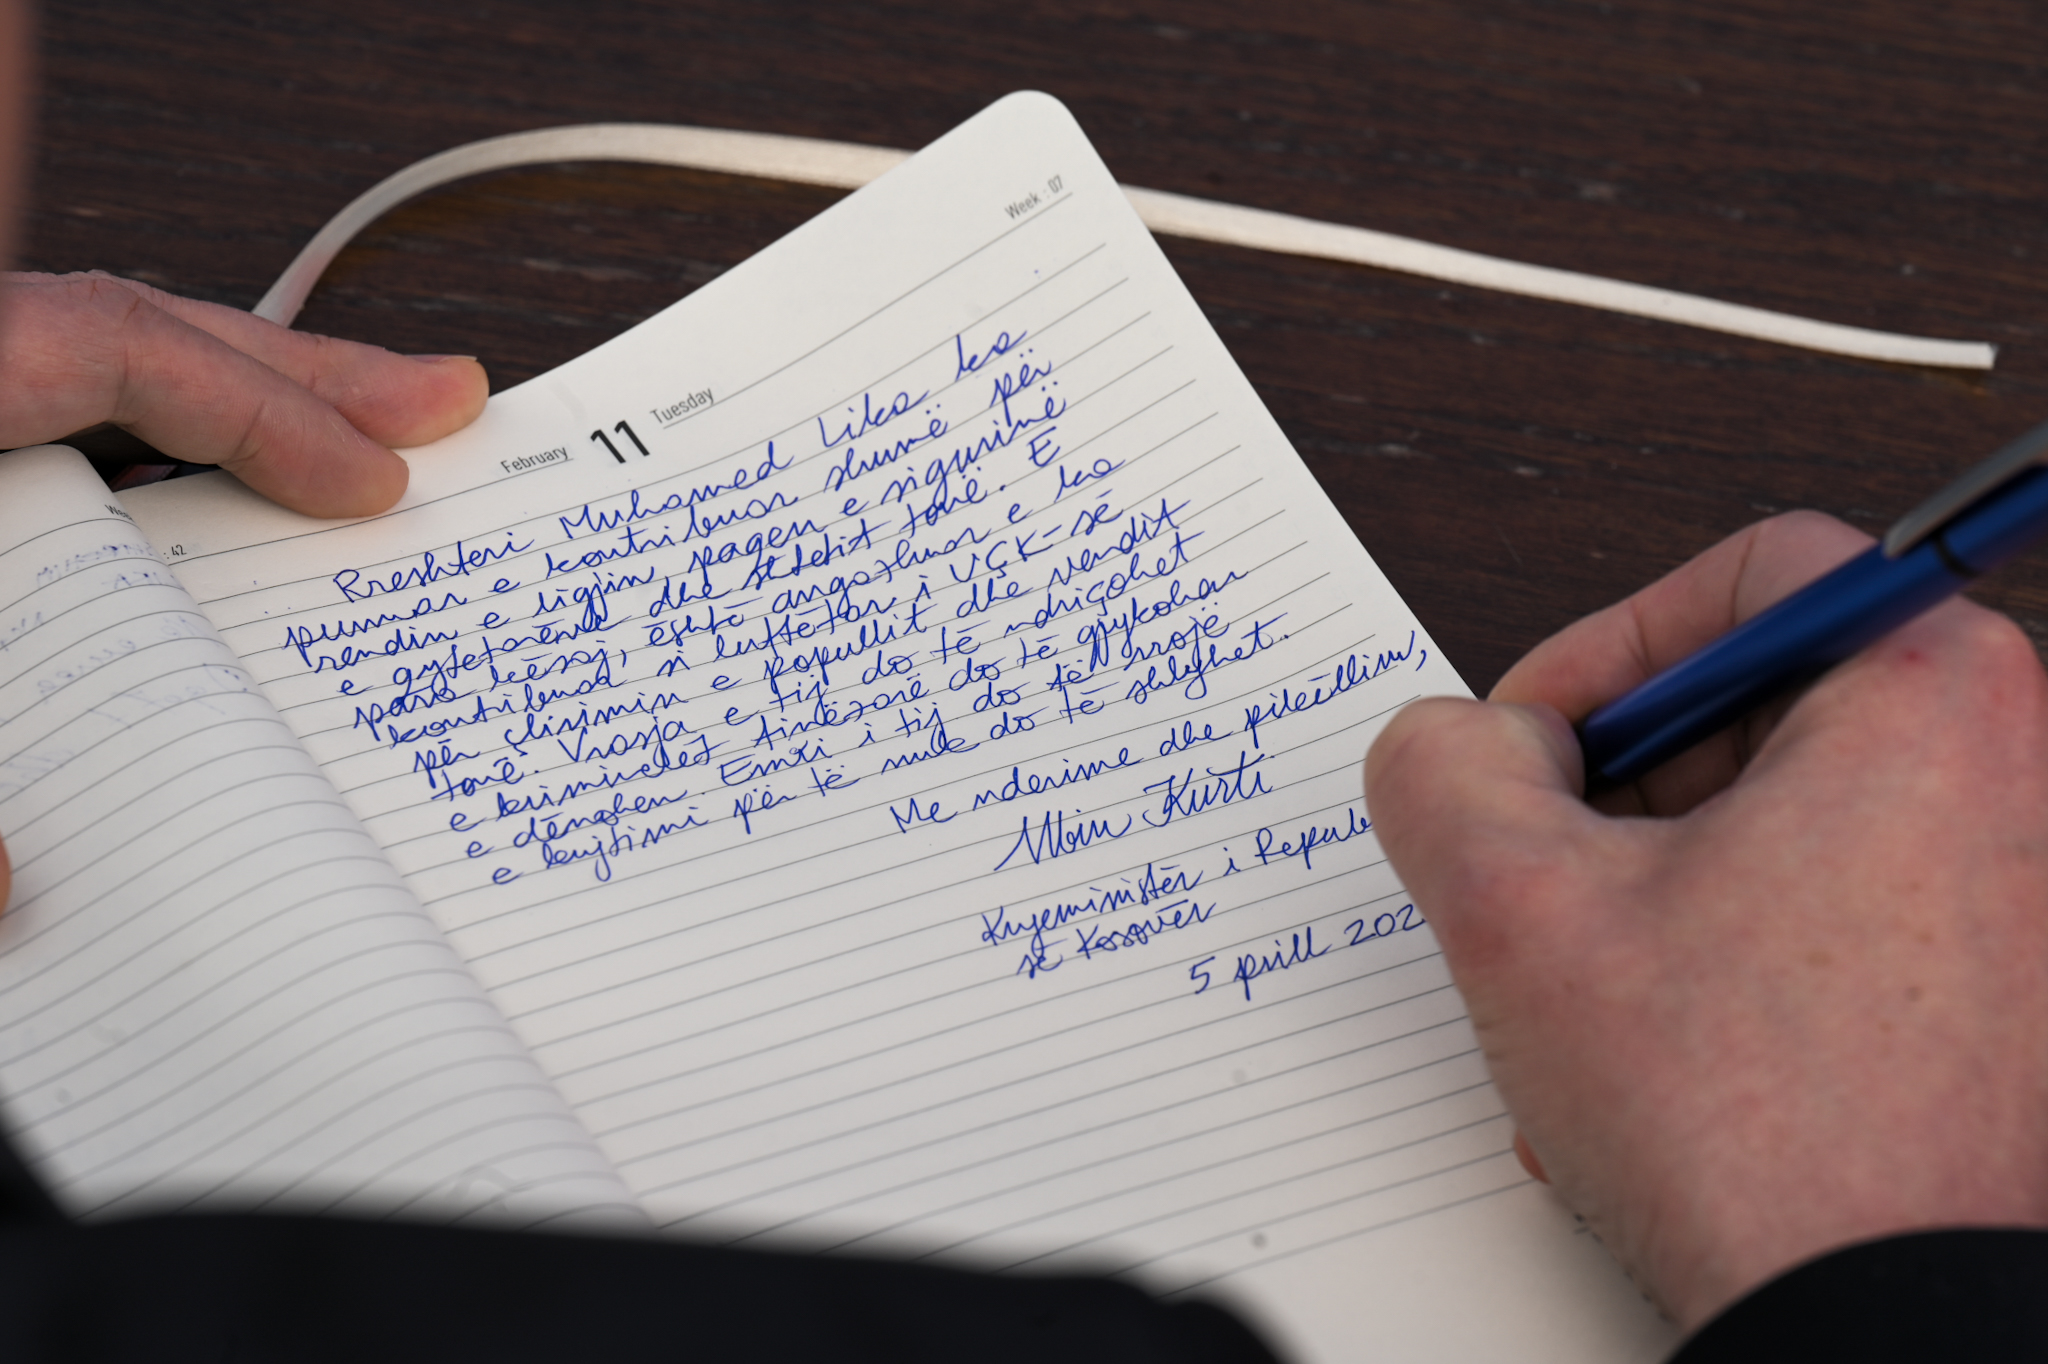 Week : 07
February 11 Tuesday
Rreshteri Muhamed Lika ka
punuar e kontribuar shumë për
rendin e ligjin, paqen e sigurinë
e qytetarëve dhe shtetit tonë. E
para kësaj, është angazhuar e ka
kontribuar si luftëtar i UÇK-së
për çlirimin e popullit dhe vendit
tonë. Vrasja e tij do të ndriçohet
e kriminelët tinëzarë do të gjykohen
e dënohen. Emri i tij do të rrojë
e kujtimi për të nuk do të shlyhet.
Me nderime dhe pikëllim,
Albin Kurti
Kryeministër i
së Kosovës
5 prill
: 42